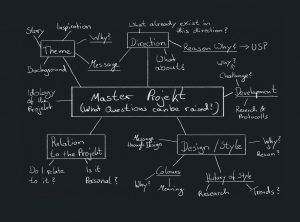 What already exist in
this direction?
Story
Inspiration
Why?
Direction
Theme
Reason Why? → USP
Message
What
about?
Why?
Background
Challenge?
Idology
of the
Projekt
Master Projekt
(What Questions can be raised?)
Development
Research &
Protocolls
Relation
to the Projekt
Message
through Design
Design / Style
Why?
Reason?
Do I relate
to it?
Is it
Personal?
Colours
History of Style
Why?
Meaning
Research
Trends?